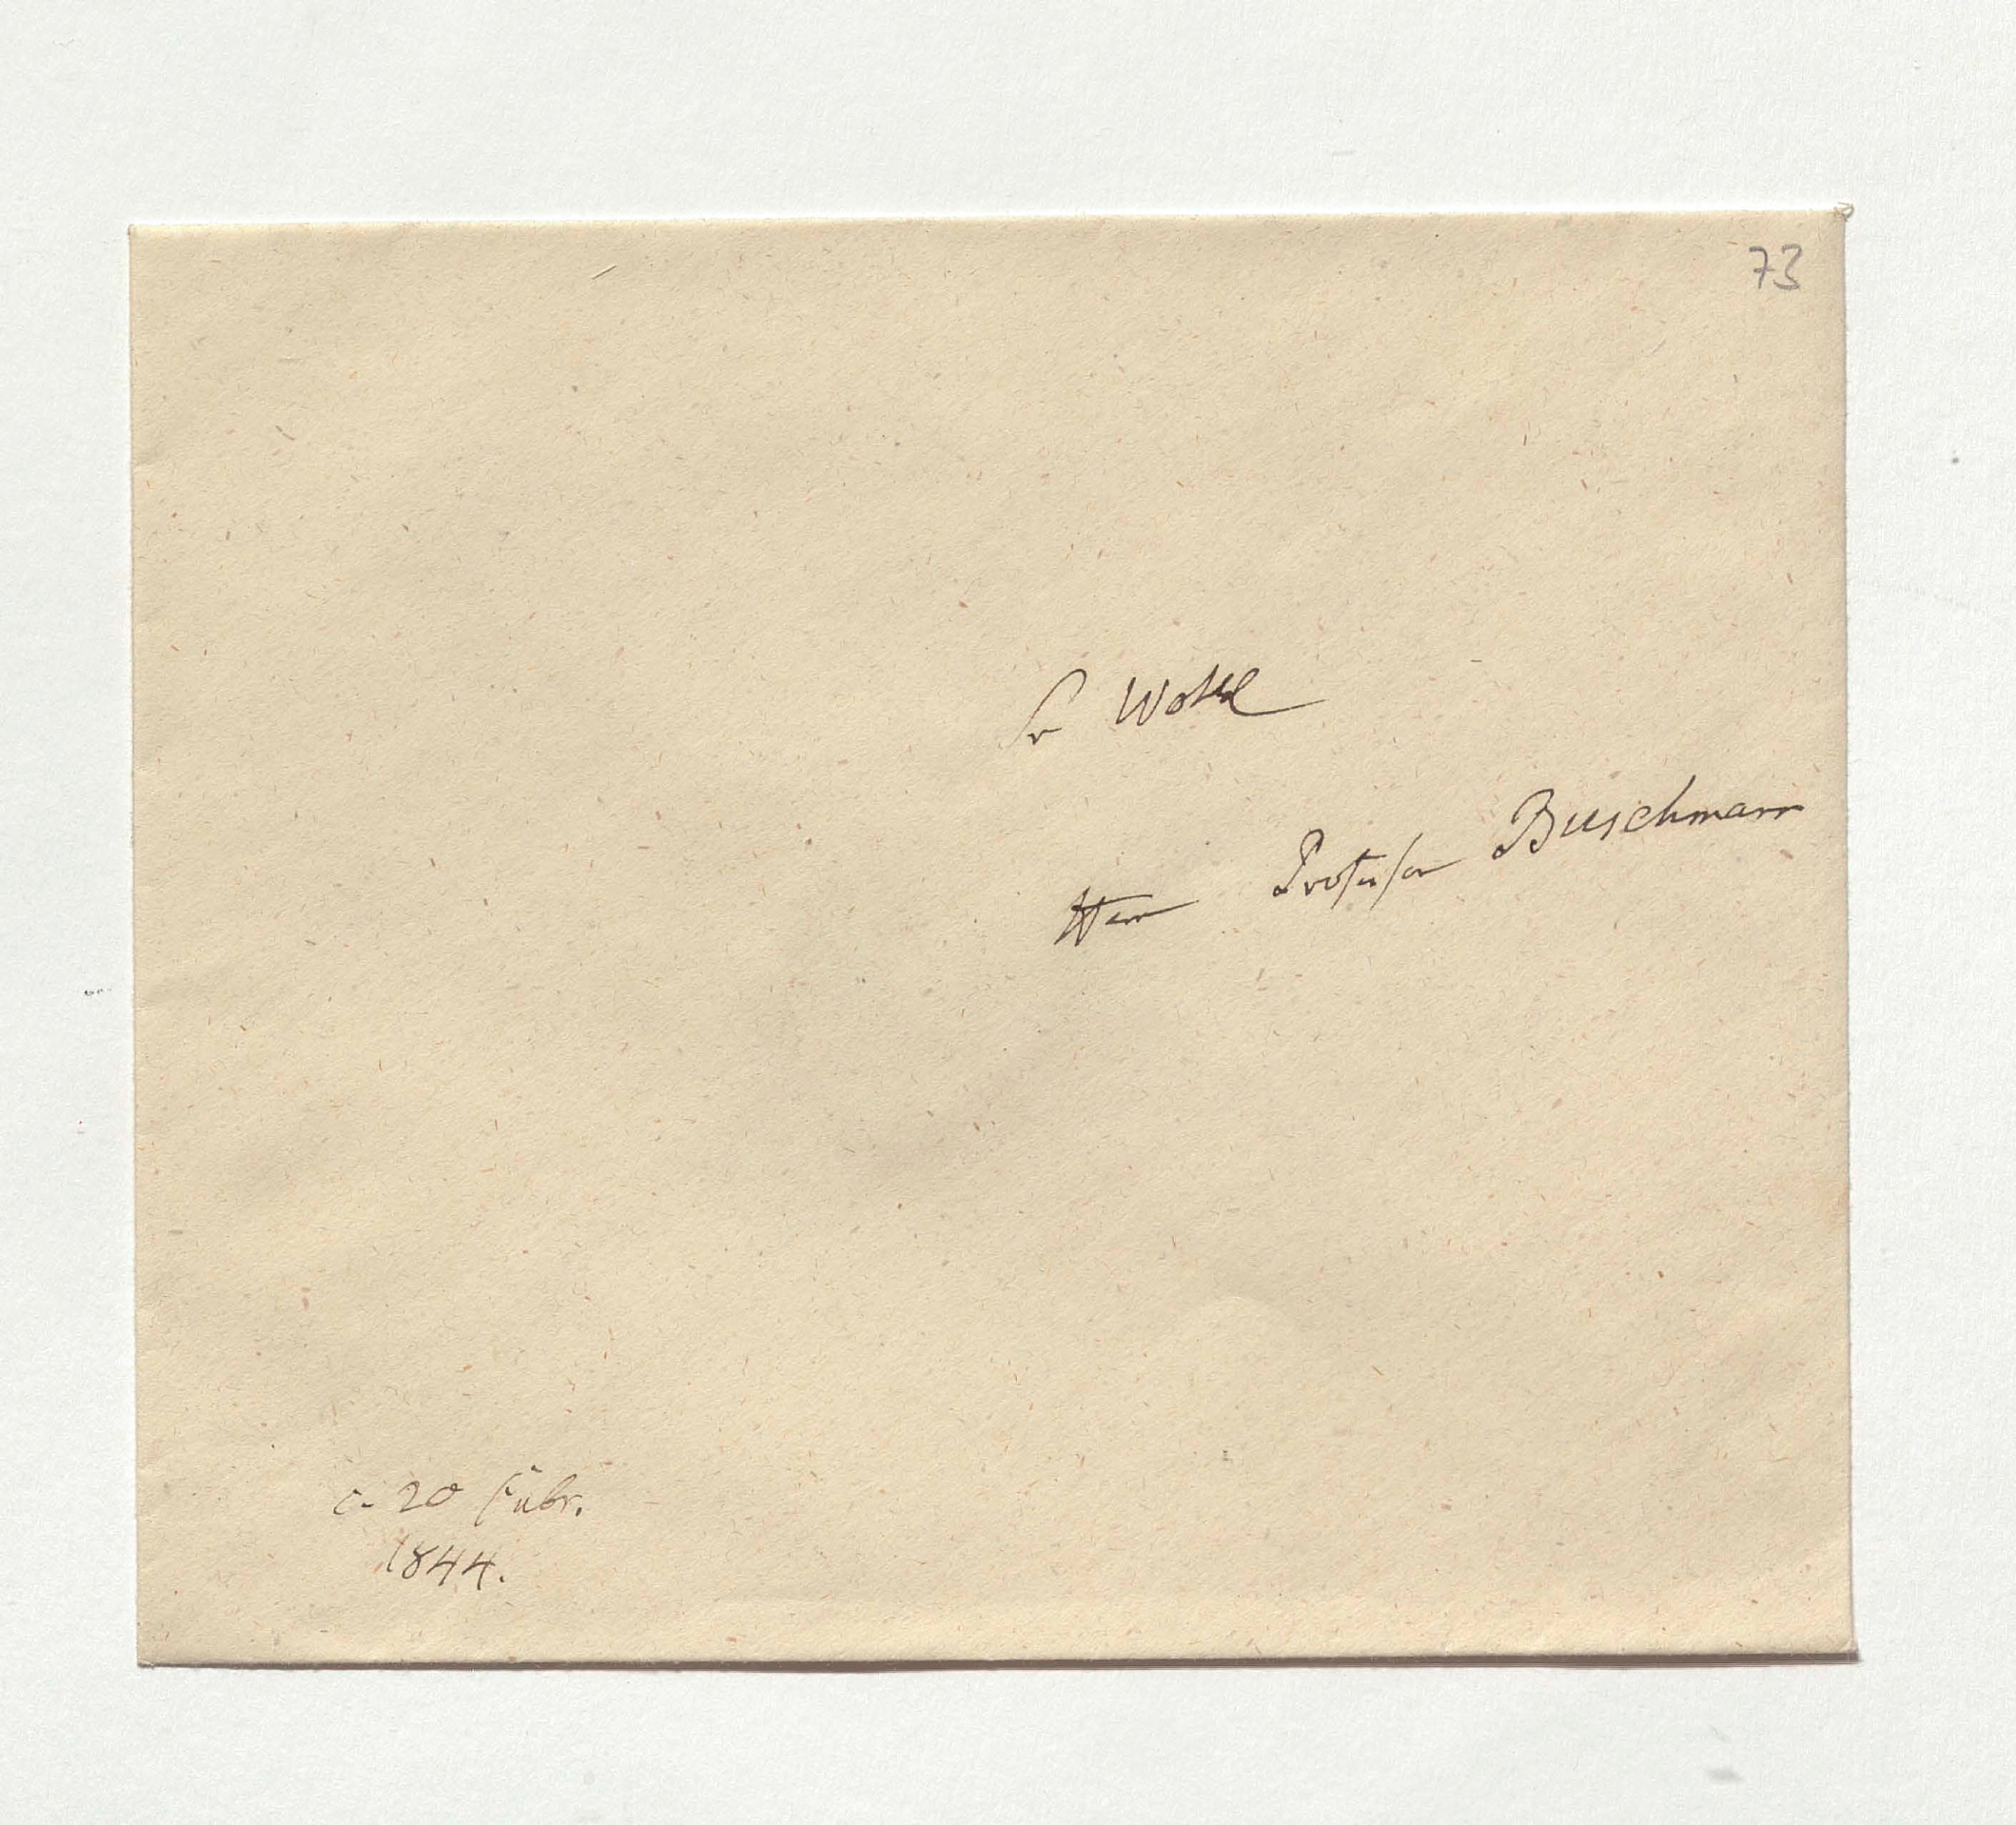 73
Sr Wohl
Herrn Professor Buschmann
c. 20 Febr.
1844.